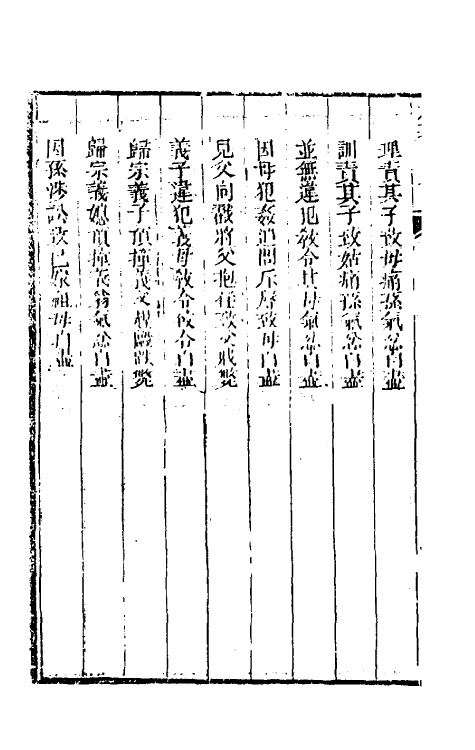 理責其子致母痛孫氣忿自盡
訓責其子致姑痛孫氣忿自盡
並無違犯敎令其母氣忿自盡
因母犯姦追問斥辱致母自盡
見父向戳將父抱住致父戕斃
義子違犯義母敎令致令自盡
歸宗義子頂撞義父趕毆跌斃
歸宗義媳頂撞義翁氣忿自盡
因孫涉訟致已故祖母自盡